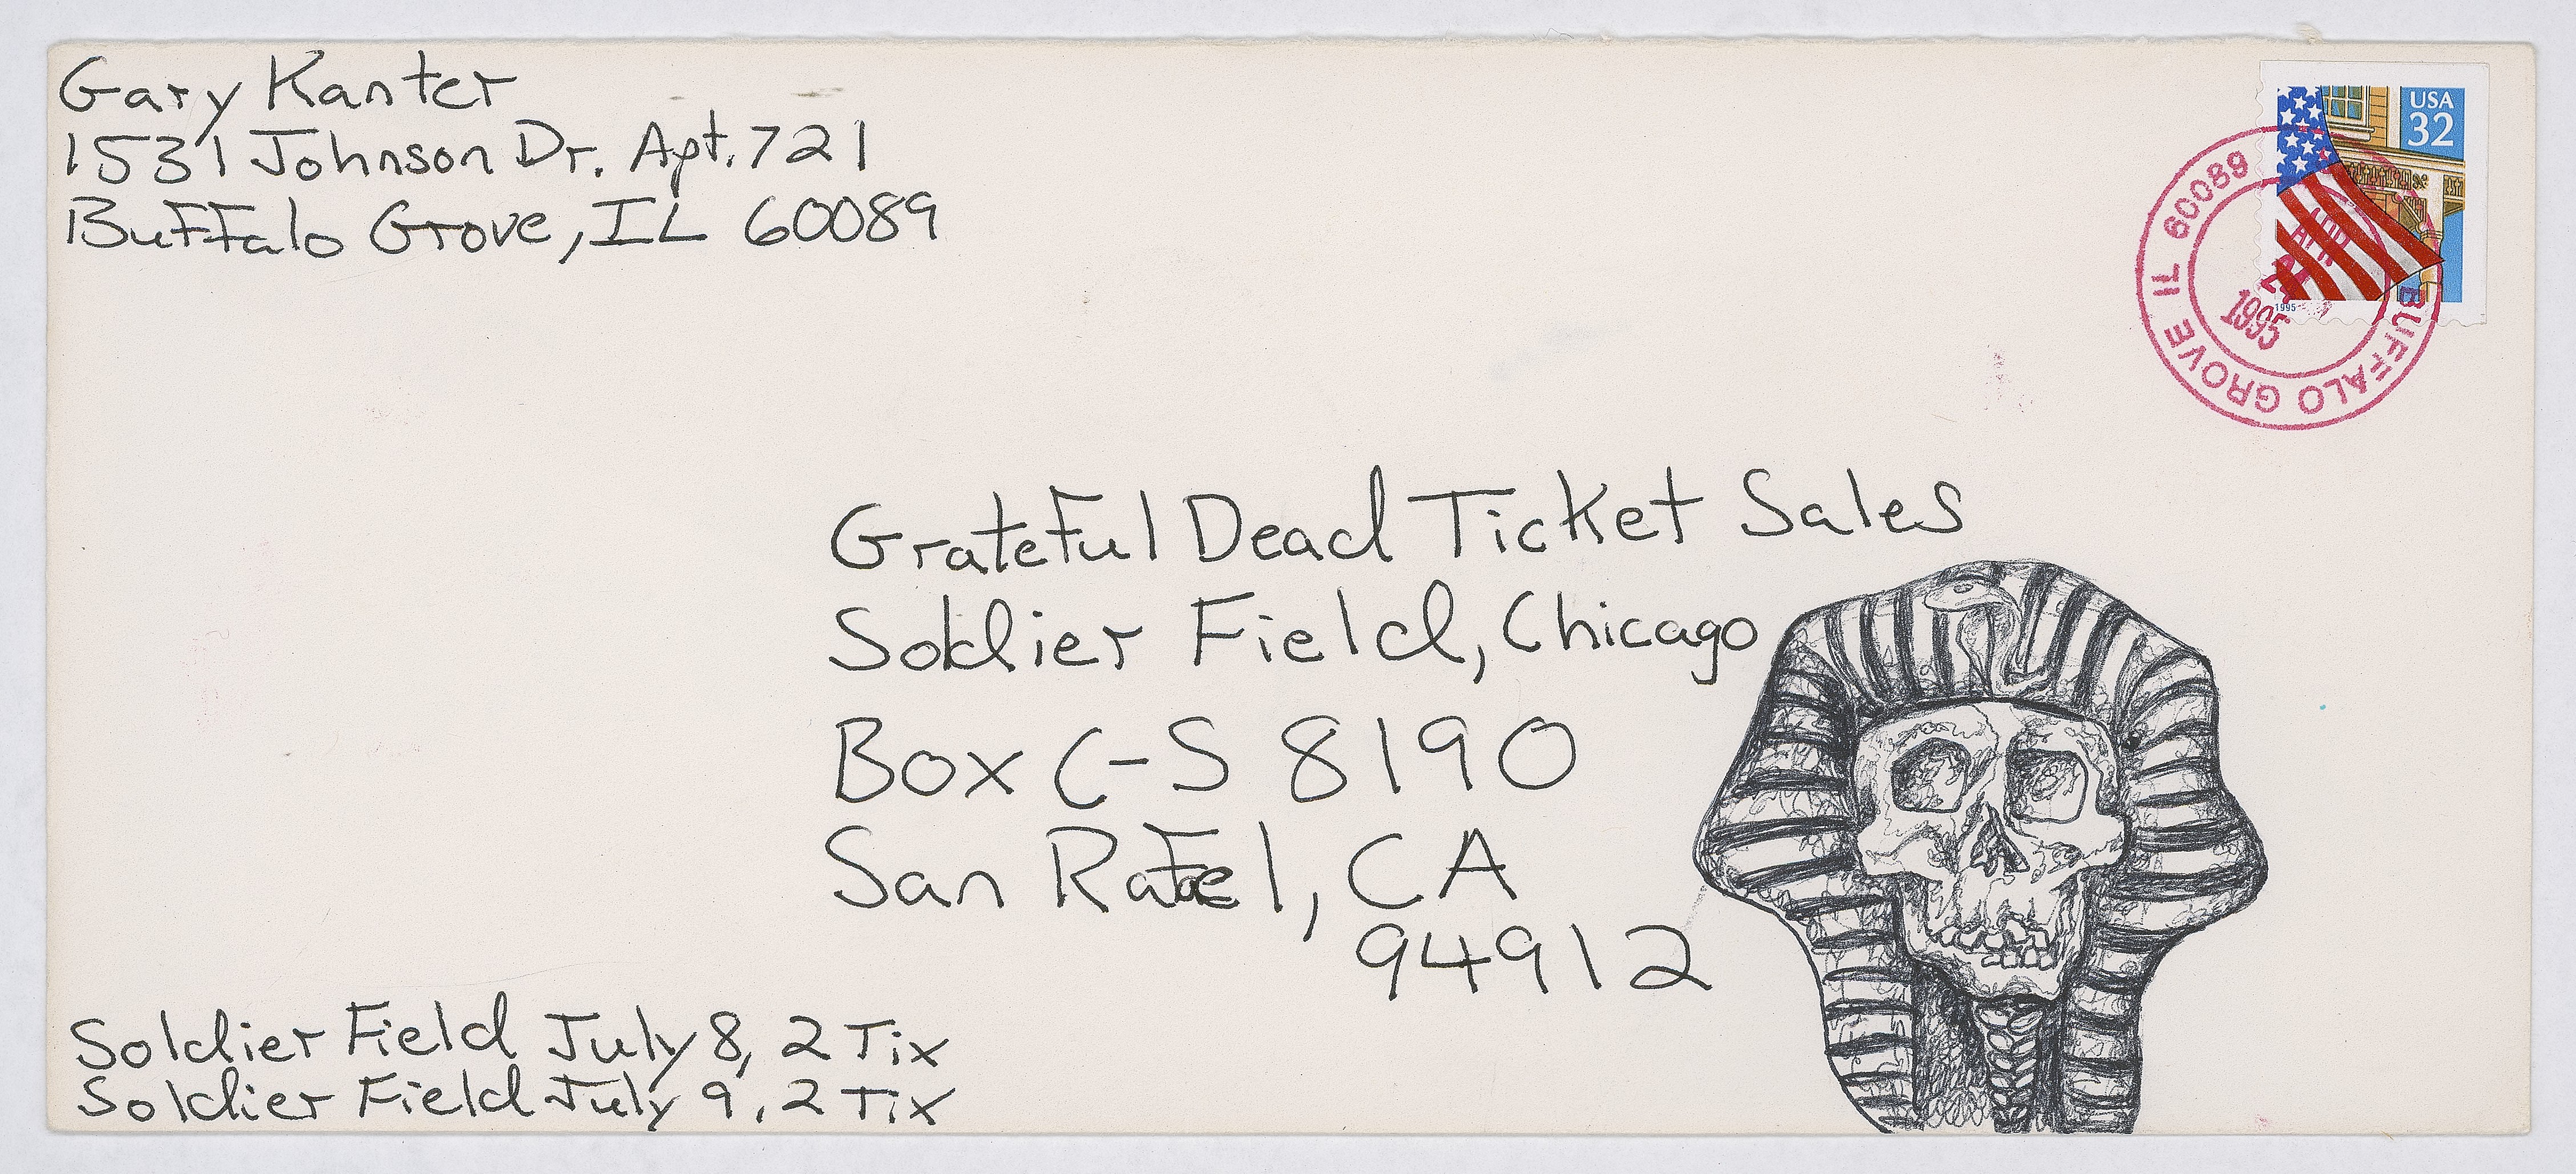 Gary Kanter
1531 Johnson Dr. Apt. 721
Buffalo Grove, IL 60089
USA
32
1995
BUFFALO GROVE IL 60089
1995
Grateful Dead Ticket Sales
Soldier Field, Chicago
Box C-S 8190
San Rafael, CA
94912
Soldier Field July 8, 2 Tix
Soldier Field July 9, 2 Tix